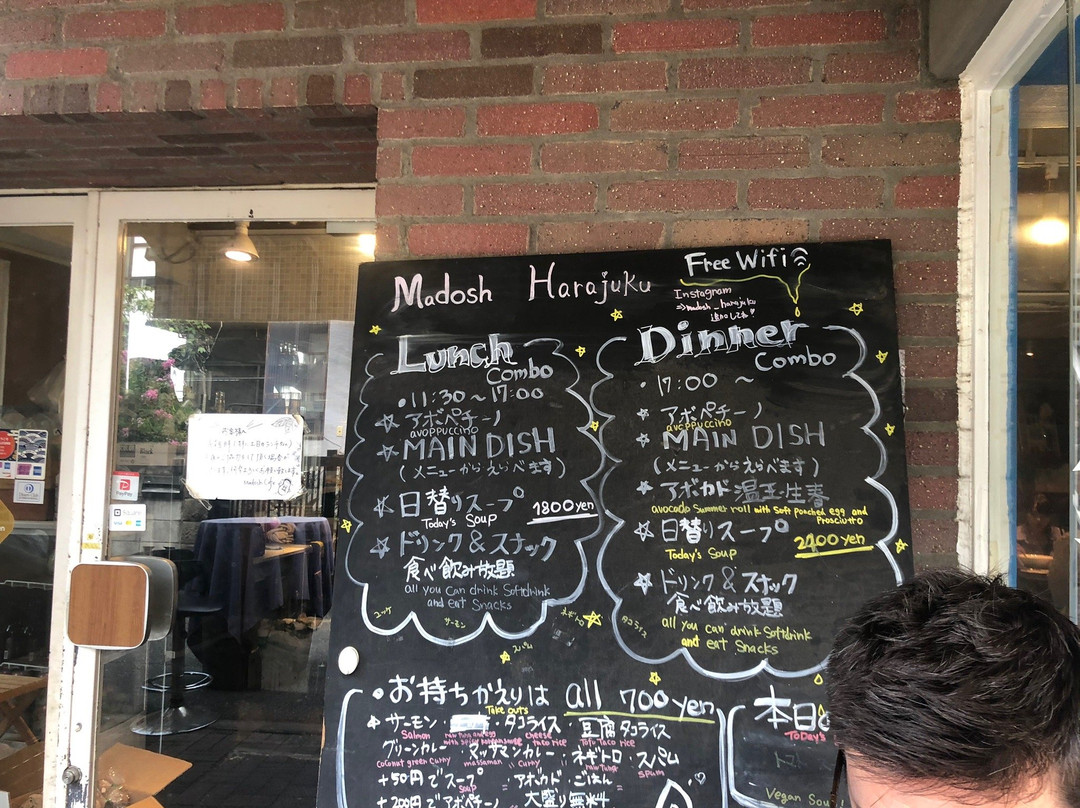 Madosh Harajuku
Free Wifi
Instagram
⇒madosh_harajuku
Lunch
Combo
・11:30～17:00
☆アボペチーノ
avoppuccino
☆MAIN DISH
(メニューからえらべます)
☆日替りスープ
Today's Soup
1800yen
☆ドリンク&スナック
食べ飲み放題
all you can drink Softdrink
and eat Snacks
Dinner
Combo
・17:00～
☆アボペチーノ
avoppuccino
☆MAIN DISH
(メニューからえらべます)
☆アボカド温玉生春
avocado Summer roll with Soft poached egg and
Prosciutto
☆日替りスープ
Today's Soup
2400yen
☆ドリンク&スナック
食べ飲み放題
all you can drink Softdrink
and eat Snacks
ユッケ
サーモン
スパム
ネギトロ
タコライス
・お持ちかえりは all 700yen
Take outs
サーモン・タコライス・豆腐タコライス
Salmon
cheese
taco rice
Tofu Taco rice
グリーンカレー・マッサマンカレー・ネギトロ・スパム
coconut green curry
massaman curry
raw tuna
spam
+50円でスープ
Soup
アボカド・ごはん
+200円でアボペチーノ
大盛り無料
本日
Today's
トマト
Vegan Sou
Madosh Cafe
PayPay
Square